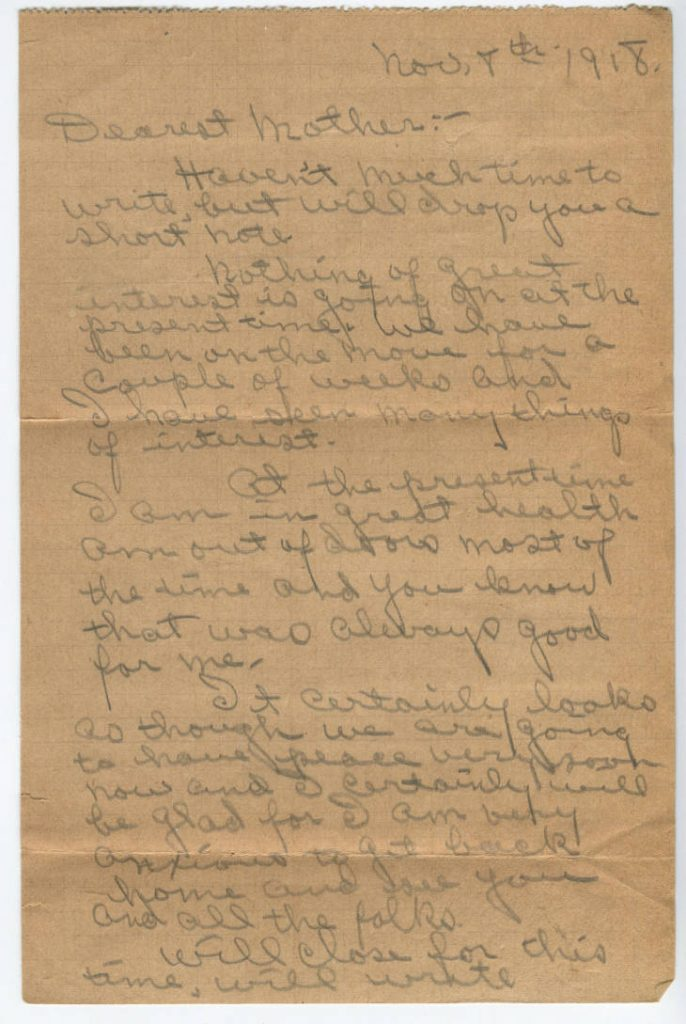 Nov. 8th 1918.
Dearest Mother:-
Haven't much time to
write, but will drop you a
short note.
Nothing of great
interest is going on at the
present time. We have
been on the move for a
couple of weeks and
I have seen many things
of interest.
At the present time
I am in great health
am out of doors most of
the time and you know
that was always good
for me.
It certainly looks
as though we are going
to have peace very soon
now and I certainly will
be glad for I am very
anxious to get back
home and see you
and all the folks.
Will close for this
time, will write